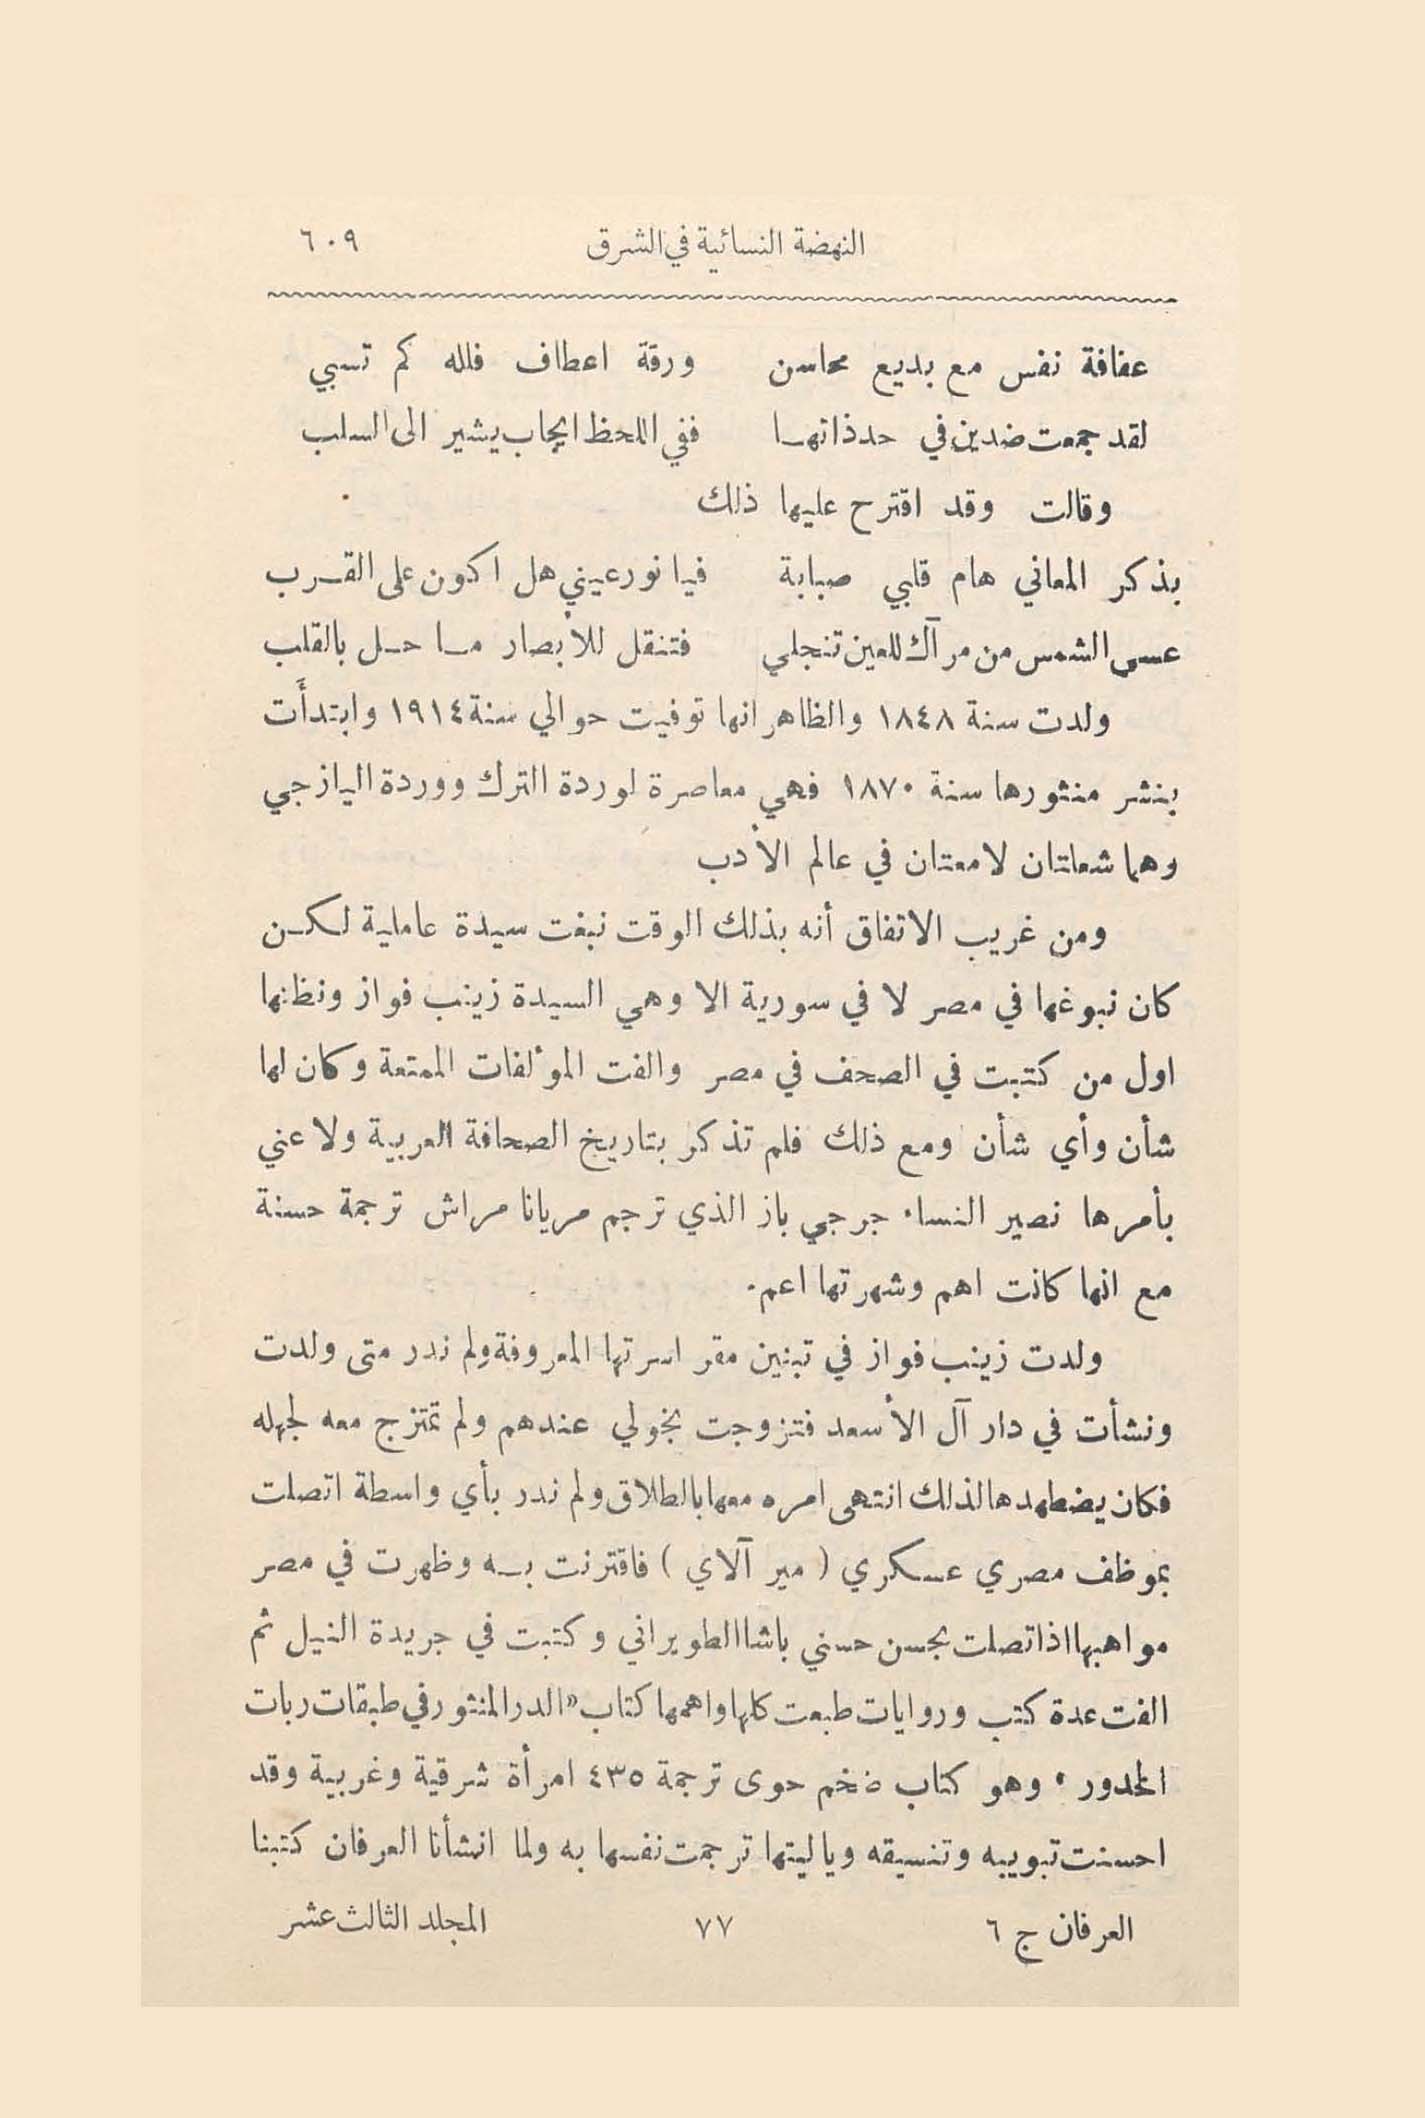 النهضة النسائية في الشرق ٦٠٩
عفافة نفس مع بديع محاسن ورقة اعطاف فلله كم تسبي
لقد جمعت ضدين في حد ذاتها ففي اللحظ ايجاب يشير الى السلب
وقالت وقد اقترح عليها ذلك
بذكر المعاني هام قلبي صبابة فيا نور عيني هل اكون على القرب
عسى الشمس من مرآك للعين تنجلي فتنقل للأبصار ما حل بالقلب
ولدت سنة ١٨٤٨ والظاهر انها توفيت حوالي سنة ١٩١٤ وابتدأَت
بنشر منثورها سنة ١٨٧٠ فهي معاصرة لوردة الترك ووردة اليازجي
وهما شعلتان لامعتان في عالم الأدب
ومن غريب الاتفاق أنه بذلك الوقت نبغت سيدة عاملية لكن
كان نبوغها في مصر لا في سورية الا وهي السيدة زينب فواز ونظنها
اول من كتبت في الصحف في مصر والفت المؤلفات الممتعة وكان لها
شأن وأي شأن ومع ذلك فلم تذكر بتاريخ الصحافة العربية ولا عني
بأمرها نصير النساء جرجي باز الذي ترجم مريانا مراش ترجمة حسنة
مع انها كانت اهم وشهرتها اعم.
ولدت زينب فواز في تبنين مقر اسرتها المعروفة ولم ندر متى ولدت
ونشأت في دار آل الأسعد فتزوجت بخولي عندهم ولم تمتزج معه لجهله
فكان يضطهدها لذلك انتهى امره معها بالطلاق ولم ندر بأي واسطة اتصلت
بموظف مصري عسكري ( مير آلاي ) فاقترنت به وظهرت في مصر
مواهبها اذ اتصلت بحسن حسني باشا الطويراني وكتبت في جريدة النيل ثم
الفت عدة كتب وروايات طبعت كلها واهمها كتاب «الدر المنثور في طبقات ربات
الخدور • وهو كتاب ضخم حوى ترجمة ٤٣٥ امرأة شرقية وغربية وقد
احسنت تبويبه وتنسيقه وياليتها ترجمت نفسها به ولما انشأنا العرفان كتبنا
العرفان ج ٦ ٧٧ المجلد الثالث عشر